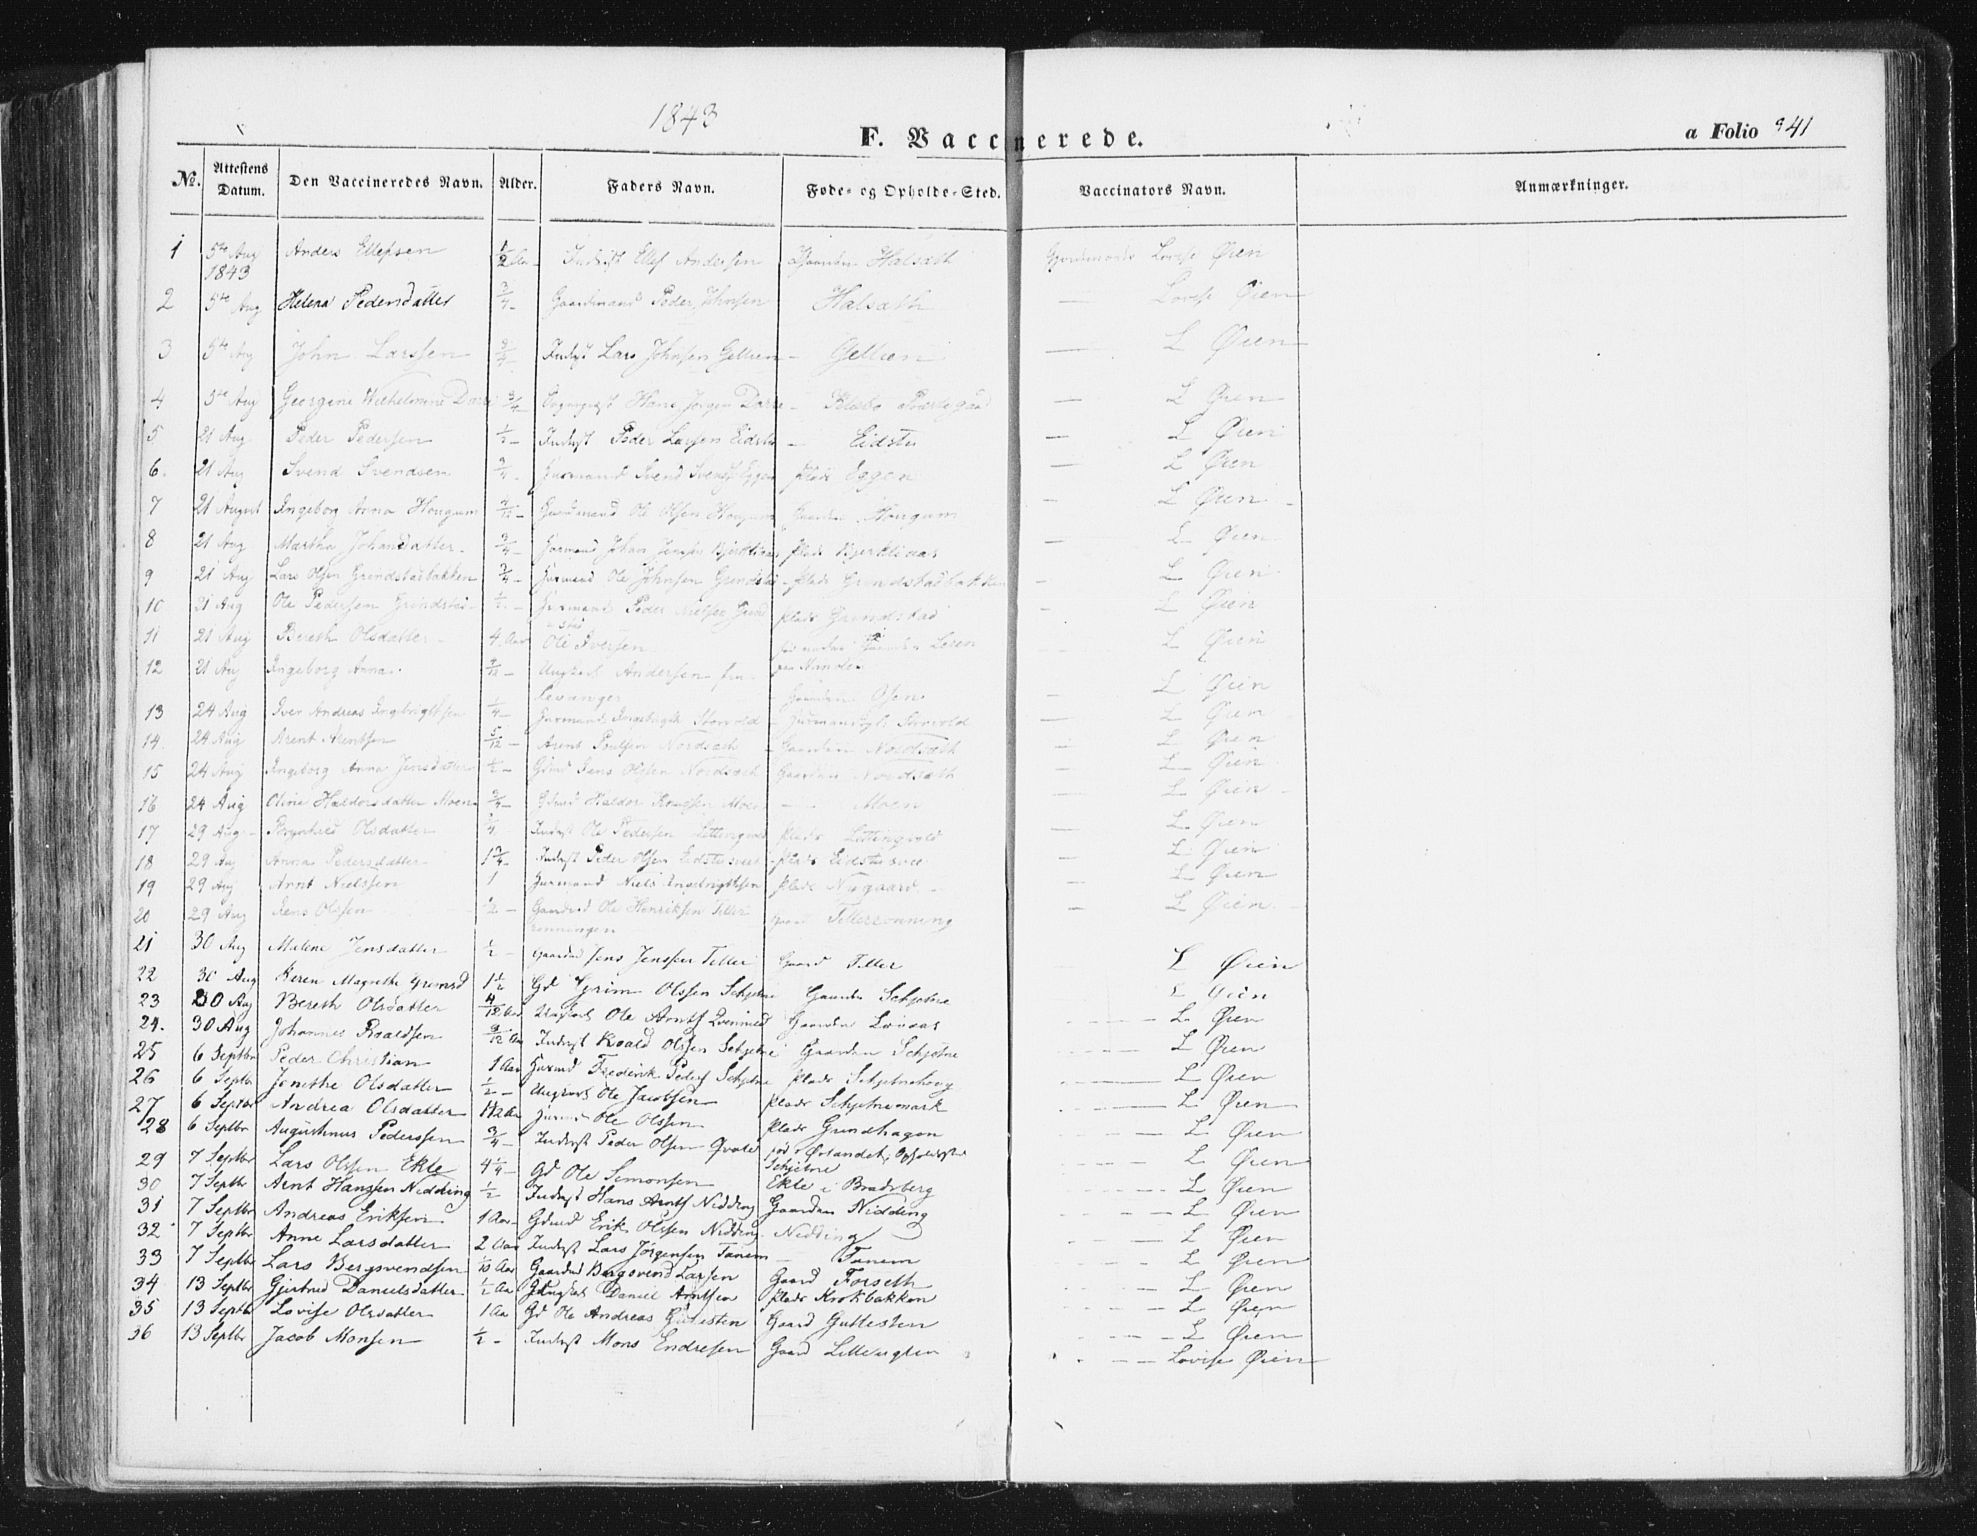 1843
F. Vaccinerede.
a Folio 941
No. Attestens Datum. Den Vaccineredes Navn. Alder. Faders Navn. Føde- og Opholds-Sted. Vaccinators Navn. Anmærkninger.
1 5te Aug 1843 Anders Ellefsen 1/2 Aar Inderst Ellef Andersen Gaarden Halsæth Lovise Øien
2 5te Aug Helena Pedersdatter 3/4 Gaardmand Peder Johnsen Halsæth Lovise Øien
3 5te Aug John Larssen 3/4 Inderst Lars Johnsen Gellien Gellien L Øien
4 5te Aug Georgine Wilhelmine Darre 3/4 Hans Jørgen Darre Klæbo Præstegaard L Øien
5 21 Aug Peder Pedersen 1/2 Inderst Peder Larsen Eidstu Eidstu L Øien
6. 21 Aug Svend Svendsen 3/4 Huusmand Svend Svends Eggen Plads Eggen L Øien
7 21 August Ingeborg Anna Hougum Gaardmand Ole Olsen Hougum Gaarden Hougum L Øien
8 21 Aug Martha Johansdatter 3/4 Huusmand Johan Jensen Bjerkliaas Plads Bjerkliaas L Øien
9 21 Aug Lars Olsen Grendstadbakken 3/4 Huusmand Ole Johnsen Grendstad Plads Grendstadbakken L Øien
10 21 Aug Ole Pedersen Grindstad 1/2 Huusmand Peder Nielsen Grindstad Plads Grindstad L Øien
11 21 Aug Bereth Olsdatter 4 Aar Ole Iversen Gaarden Leren L Øien
12 21 Aug Ingeborg Anna Ungkarl Andersen fra Levanger Gaarden Osen L Øien
13 24 Aug Iver Andreas Ingebrigtsen 1/4 Huusmand Ingebrigt Storvold Storvold L Øien
14. 24 Aug Arent Arentsen 5/12 Arent Poulsen Nordsæth Gaarden Nordsæth L Øien
15 24 Aug Ingeborg Anna Jensdatter 1/2 Gdmd Jens Olsen Nordsæth Gaarden Nordsæth L Øien
16 24 Aug Oline Haldorsdatter Moen 3/4 Gdmd Haldor Knudsen Moen Moen L Øien
17 29 Aug Brynhild Olsdatter Inderst Ole Pedersen Lettingvold Plads Lettingvold L Øien
18 29 Aug Anna Pedersdatter 1 3/4 Inderst Peder Olsen Eidstusveet Plads L Øien
19 29 Aug Arnt Nielssen 1 Huusmand Niels Ingebrigtsen Plads Nygaard L Øien
20 29 Aug Jens Olssen 1/2 Gaardmd Ole Henriksen Tellerrønningen Gaard Tellerrønning L Øien
21 30 Aug Malene Jensdatter 1/2 Gaardmd Jens Jenssen Teller Gaard Teller L Øien
22 30 Aug Keren Magrethe Grimsd 1 1/2 Gd Grim Olssen Schjetne Gaarden Schjetne L Øien
23 30 Aug Bereth Olsdatter 4/12 Aar Ungkarl Ole Arntsen Qvenild Gaarden Løvaas L Øien
24. 30 Aug Johannes Roaldsen 9/12 Aar Inderst Roald Olssen Schjetne Gaarden Schjetne L Øien
25 6 Septbr Peder Christian 1 Aar Huusmd Frederik Peders Schjetne Plads Schjetnehoug L Øien
26 6 Septbr Jonethe Olsdatter 1/2 Ungkarl Ole Jacobsen Plads Schjetnemark L Øien
27 6 Septbr Andrea Olsdatter Huusmd Ole Olssen Plads Grundhagen L Øien
28 6 Septbr Augustinus Pederssen 3/4 Inderst Peder Olsen Qvale fød i Ørlandet, Opholdssted Schjetne L Øien
29 7 Septbr Lars Olssen Ekle 4 1/4 Gd Ole Simonsen Ekle i Bradsberg L Øien
30 7 Septbr Arnt Hanssen Nidding 1/2 Inderst Hans Arntsen Nidding Gaarden Nidding L Øien
31 7 Septbr Andreas Eriksen 1 Aar Gdmd Erik Olssen Nidding Nidding L Øien
32 7 Septbr Anne Larsdatter 2 Aar Inderst Lars Jørgensen Tanem Tanem L Øien
33 7 Septbr Lars Bergsvendsen 1/10 Aar Gaardmd Bergsvend Larsen Gaard Forseth L Øien
34 13 Septbr Gjertrud Danielsdatter 1/2 Aar Daniel Arntsen Plads Krokbakken L Øien
35 13 Septbr Lovise Olsdatter 1 Aar Gd Ole Andreas Gutesten Gaard Guttesten L Øien
36 13 Septbr Jacob Monsen 1/2 Inderst Mons Endresen Gaard Lilleugten Lovise Øien